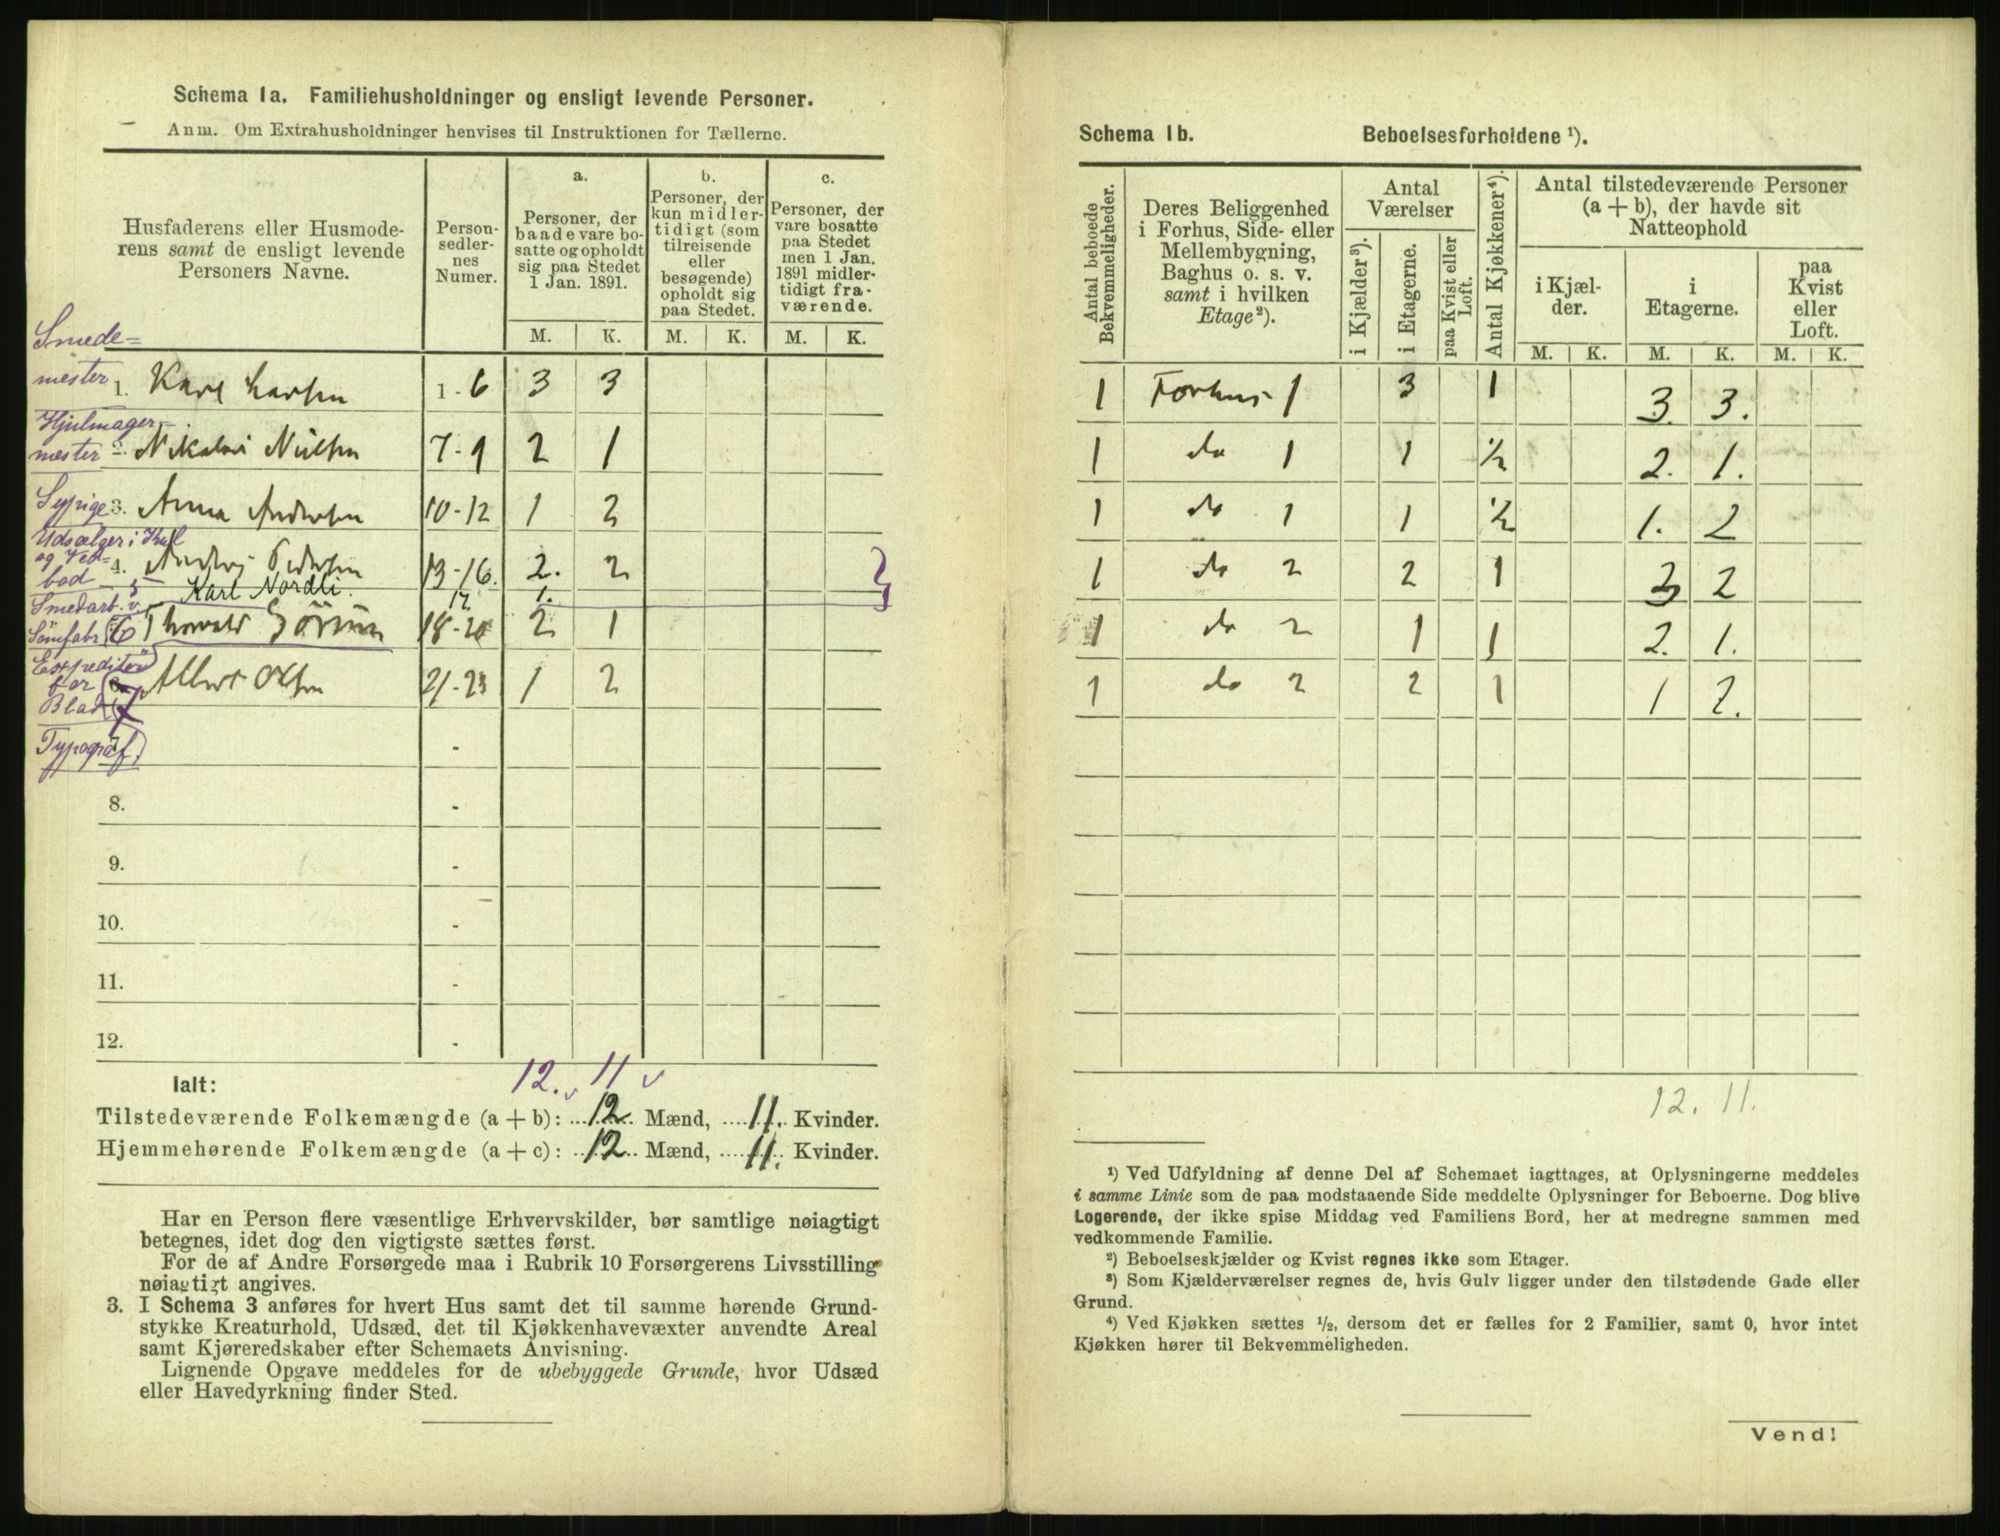 Schema 1a. Familiehusholdninger og ensligt levende Personer.
Anm. Om Extrahusholdninger henvises til Instruktionen for Tællerne.
Husfaderens eller Husmode-
rens samt de ensligt levende
Personers Navne.
Person-
sedler-
nes
Numer.
a.
Personer, der
baade vare bo-
satte og opholdt
sig paa Stedet
1 Jan. 1891.
b.
Personer, der
kun midler-
tidigt (som
tilreisende
eller
besøgende)
opholdt sig
paa Stedet.
c.
Personer, der
vare bosatte
paa Stedet
men 1 Jan.
1891 midler-
tidigt fra-
værende.
M. K. M. K. M. K.
Smede=
mester 1. Karl Larsen 1-6 3 3
Hjulmager=
mester 2. Nikolai Nielsen 7-9 2 1
Sypige 3. Anna Andersen 10-12 1 2
Udsælger i Kul
og Ved=
bod 4. Pedersen 13-16. 2. 2
5 Karl Nordli. 17 1.
Smedarb. v.
Sömfabr. 6 Thorvald 18-20 2 1
Expeditör
for
Blad 7 Albert Olsen 21-23 1 2
Typograf. -
8. -
9. -
10. -
11. -
12. -
12. 11
Ialt:
Tilstedeværende Folkemængde (a + b): 12 Mænd, 11. Kvinder.
Hjemmehørende Folkemængde (a + c): 12 Mænd, 11. Kvinder.
Har en Person flere væsentlige Erhvervskilder, bør samtlige nøiagtigt
betegnes, idet dog den vigtigste sættes først.
For de af Andre Forsørgede maa i Rubrik 10 Forsørgerens Livsstilling
nøiagtigt angives.
3. I Schema 3 anføres for hvert Hus samt det til samme hørende Grund-
stykke Kreaturhold, Udsæd, det til Kjøkkenhavevæxter anvendte Areal
samt Kjøreredskaber efter Schemaets Anvisning.
Lignende Opgave meddeles for de ubebyggede Grunde, hvor Udsæd
eller Havedyrkning finder Sted.
Schema 1b. Beboelsesforholdene ¹).
Antal beboede
Bekvemmeligheder.
Deres Beliggenhed
i Forhus, Side- eller
Mellembygning,
Baghus o. s. v.
samt i hvilken
Etage²).
Antal
Værelser
i Kjælder³).
i Etagerne.
paa Kvist eller
Loft.
Antal Kjøkkener⁴).
Antal tilstedeværende Personer
(a + b), der havde sit
Natteophold
i Kjæl-
der.
i
Etagerne.
paa
Kvist
eller
Loft.
M. K. M. K. M. K.
1 Forhus 1 3 1 3. 3.
1 do 1 1 ½ 2. 1.
1 do 1 1 ½ 1. 2
1 do 2 2 1 3 2
1 do 2 1 1 2. 1.
1 do 2 2 1 1 2.
12. 11.
¹) Ved Udfyldning af denne Del af Schemaet iagttages, at Oplysningerne meddeles
i samme Linie som de paa modstaaende Side meddelte Oplysninger for Beboerne. Dog blive
Logerende, der ikke spise Middag ved Familiens Bord, her at medregne sammen med
vedkommende Familie.
²) Beboelseskjælder og Kvist regnes ikke som Etager.
³) Som Kjælderværelser regnes de, hvis Gulv ligger under den tilstødende Gade eller
Grund.
⁴) Ved Kjøkken sættes ½, dersom det er fælles for 2 Familier, samt 0, hvor intet
Kjøkken hører til Bekvemmeligheden.
Vend!